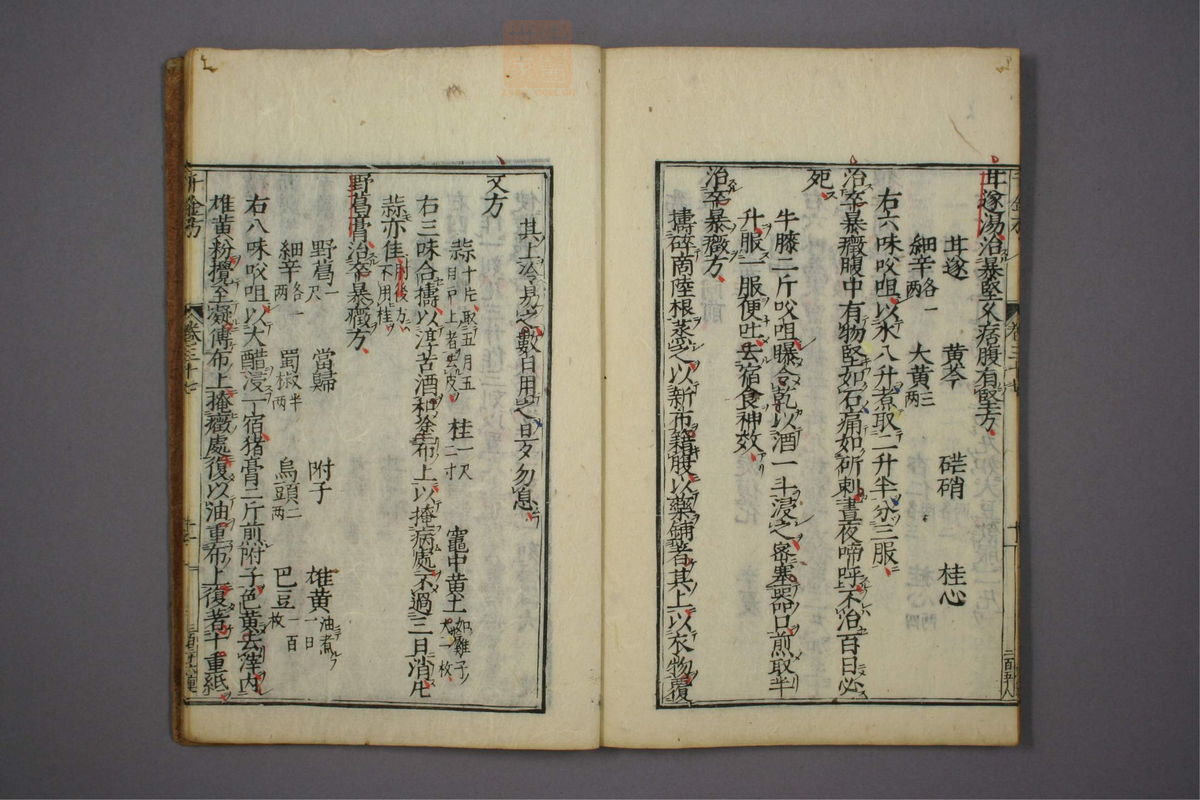 甘遂湯治暴堅久痞腹有堅方
甘遂 黄芩 硭硝 桂心
細辛各一两 大黄三两
右六味㕮咀以水八升煮取二升半分三服
治卒暴癥腹中有物堅如石痛如斫刺晝夜啼呼不治百日必
死
牛膝二斤㕮咀曝令乾以酒一斗浸之密塞器口煎取半
升服一服便吐去宿食神效
治卒暴癥方
擣碎商陸根蒸之以新布籍腹以藥鋪著其上以衣物覆
其上冷易之數日用之旦夕勿息
又方
蒜十片取五月五日戸上者去皮 桂一尺二寸 竈中黄土如雞子大一枚
右三味合擣以淳苦酒和塗布上以掩病處不過三日消凢
蒜亦佳肘後方不用桂
野葛膏治卒暴癥方
野葛一尺 當歸 附子 雄黄油煮一日
細辛各一两 蜀椒半两 烏頭二两 巴豆一百枚
右八味㕮咀以大醋浸一宿猪膏二斤煎附子色黄去滓内
雄黄粉攪至凝傅布上掩癥處復以油重布上復著十重紙
千金方
卷三十七
十一